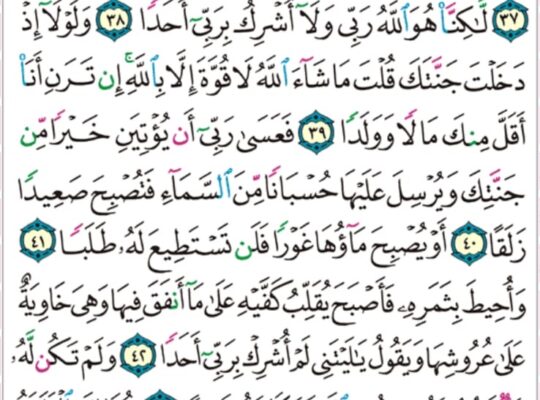 ٣٧ لَّٰكِنَّا۠ هُوَ ٱللَّهُ رَبِّي وَلَآ أُشْرِكُ بِرَبِّيٓ أَحَدًا ٣٨ وَلَوْلَآ إِذْ
دَخَلْتَ جَنَّتَكَ قُلْتَ مَا شَآءَ ٱللَّهُ لَا قُوَّةَ إِلَّا بِٱللَّهِۚ إِن تَرَنِ أَنَا۠
أَقَلَّ مِنكَ مَالًا وَوَلَدًا ٣٩ فَعَسَىٰ رَبِّيٓ أَن يُؤْتِيَنِ خَيْرًا مِّن
جَنَّتِكَ وَيُرْسِلَ عَلَيْهَا حُسْبَانًا مِّنَ ٱلسَّمَآءِ فَتُصْبِحَ صَعِيدًا
زَلَقًا ٤٠ أَوْ يُصْبِحَ مَآؤُهَا غَوْرًا فَلَن تَسْتَطِيعَ لَهُۥ طَلَبًا ٤١
وَأُحِيطَ بِثَمَرِهِۦ فَأَصْبَحَ يُقَلِّبُ كَفَّيْهِ عَلَىٰ مَآ أَنفَقَ فِيهَا وَهِيَ خَاوِيَةٌ
عَلَىٰ عُرُوشِهَا وَيَقُولُ يَٰلَيْتَنِي لَمْ أُشْرِكْ بِرَبِّيٓ أَحَدًا ٤٢ وَلَمْ تَكُن لَّهُۥ